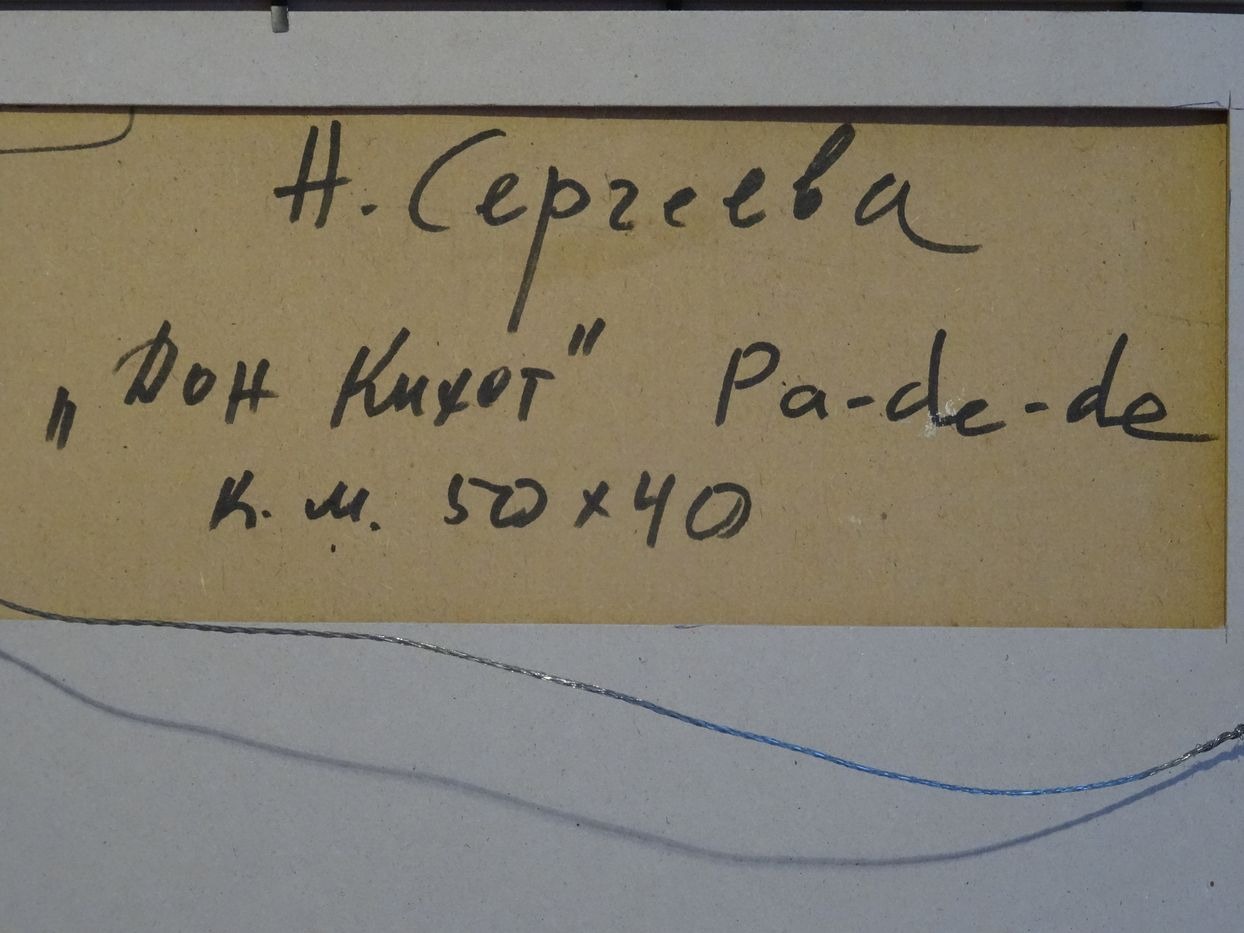 Н. Сергеева
„Дон Кихот" Pa-de-de
к. м. 50 x 40